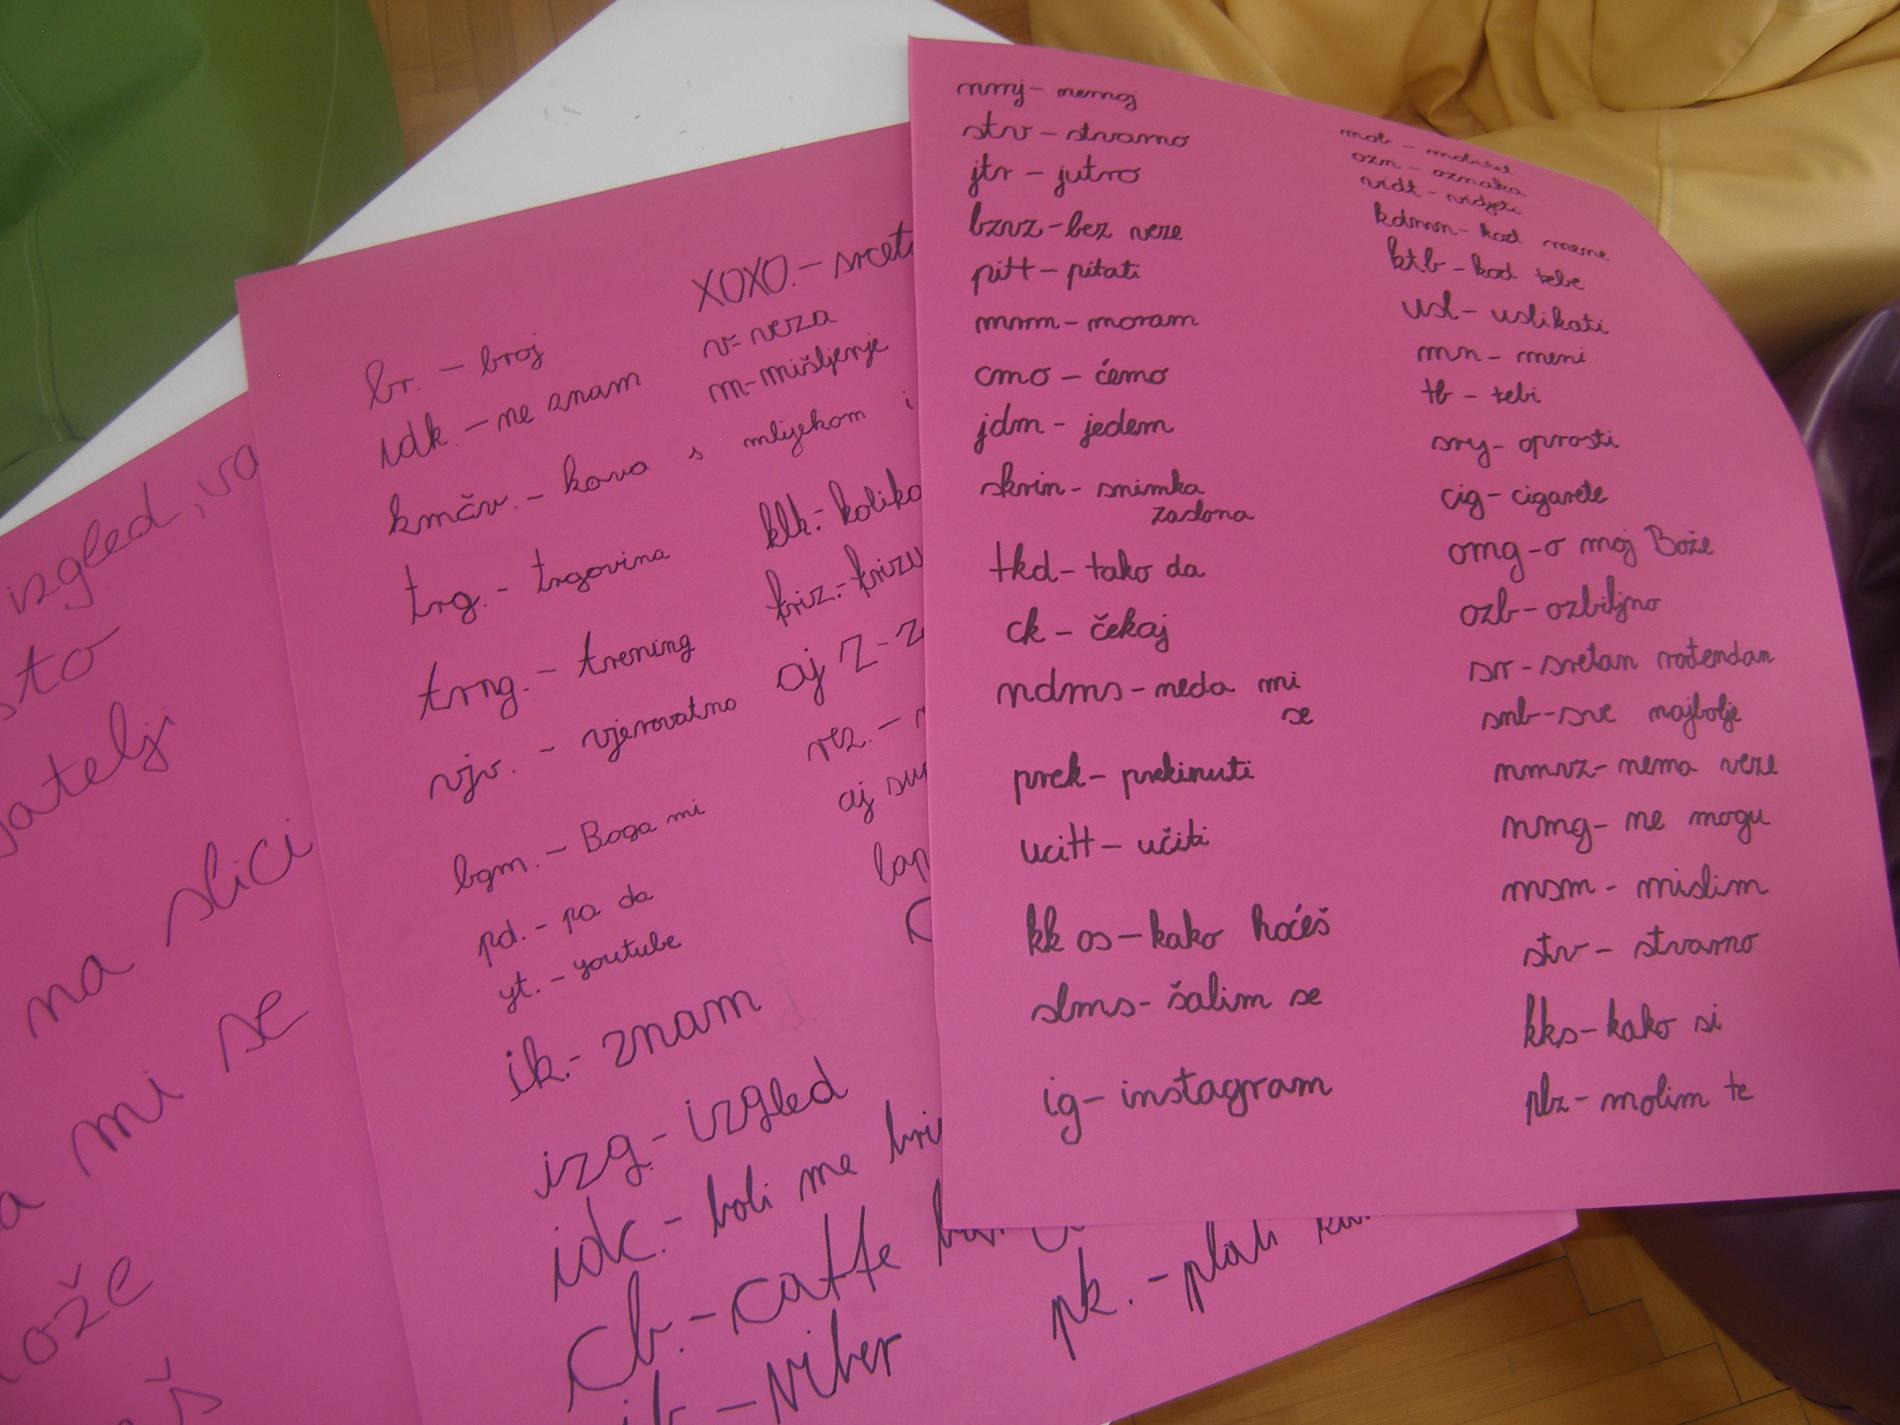 izgled,
na slici
mi se
br. - broj
idk. - ne znam
kmčv. - kava s mlijekom i
trg. - trgovina
trng. - trening
vjv. - vjerovatno
bgm. - Boga mi
pd. - pa da
yt. - youtube
ik. - znam
izg. - izgled
idc. - boli me
cb. - caffe
- viber
XOXO. -
v= veza
m- mišljenje
klk. - koliko
kriz. -
aj
rez. -
aj
pk. - plati
nmj - nemoj
stv - stvarno
jtr - jutro
bzvz - bez veze
pitt - pitati
mrm - moram
cmo - ćemo
jdm - jedem
skrin - snimka
zaslona
tkd - tako da
ck - čekaj
ndms - neda mi
se
prek - prekinuti
ucitt - učiti
kk os - kako hoćeš
slms - šalim se
ig - instagram
mob - mobitel
ozn - oznaka
vidt - vidjeti
kdmn - kod mene
ktb - kod tebe
usl - uslikati
mn - meni
tb - tebi
sry - oprosti
cig - cigarete
omg - o moj Bože
ozb - ozbiljno
srr - sretan rođendan
smb - sve najbolje
nmvz - nema veze
nmg - ne mogu
msm - mislim
stv - stvarno
kks - kako si
plz - molim te